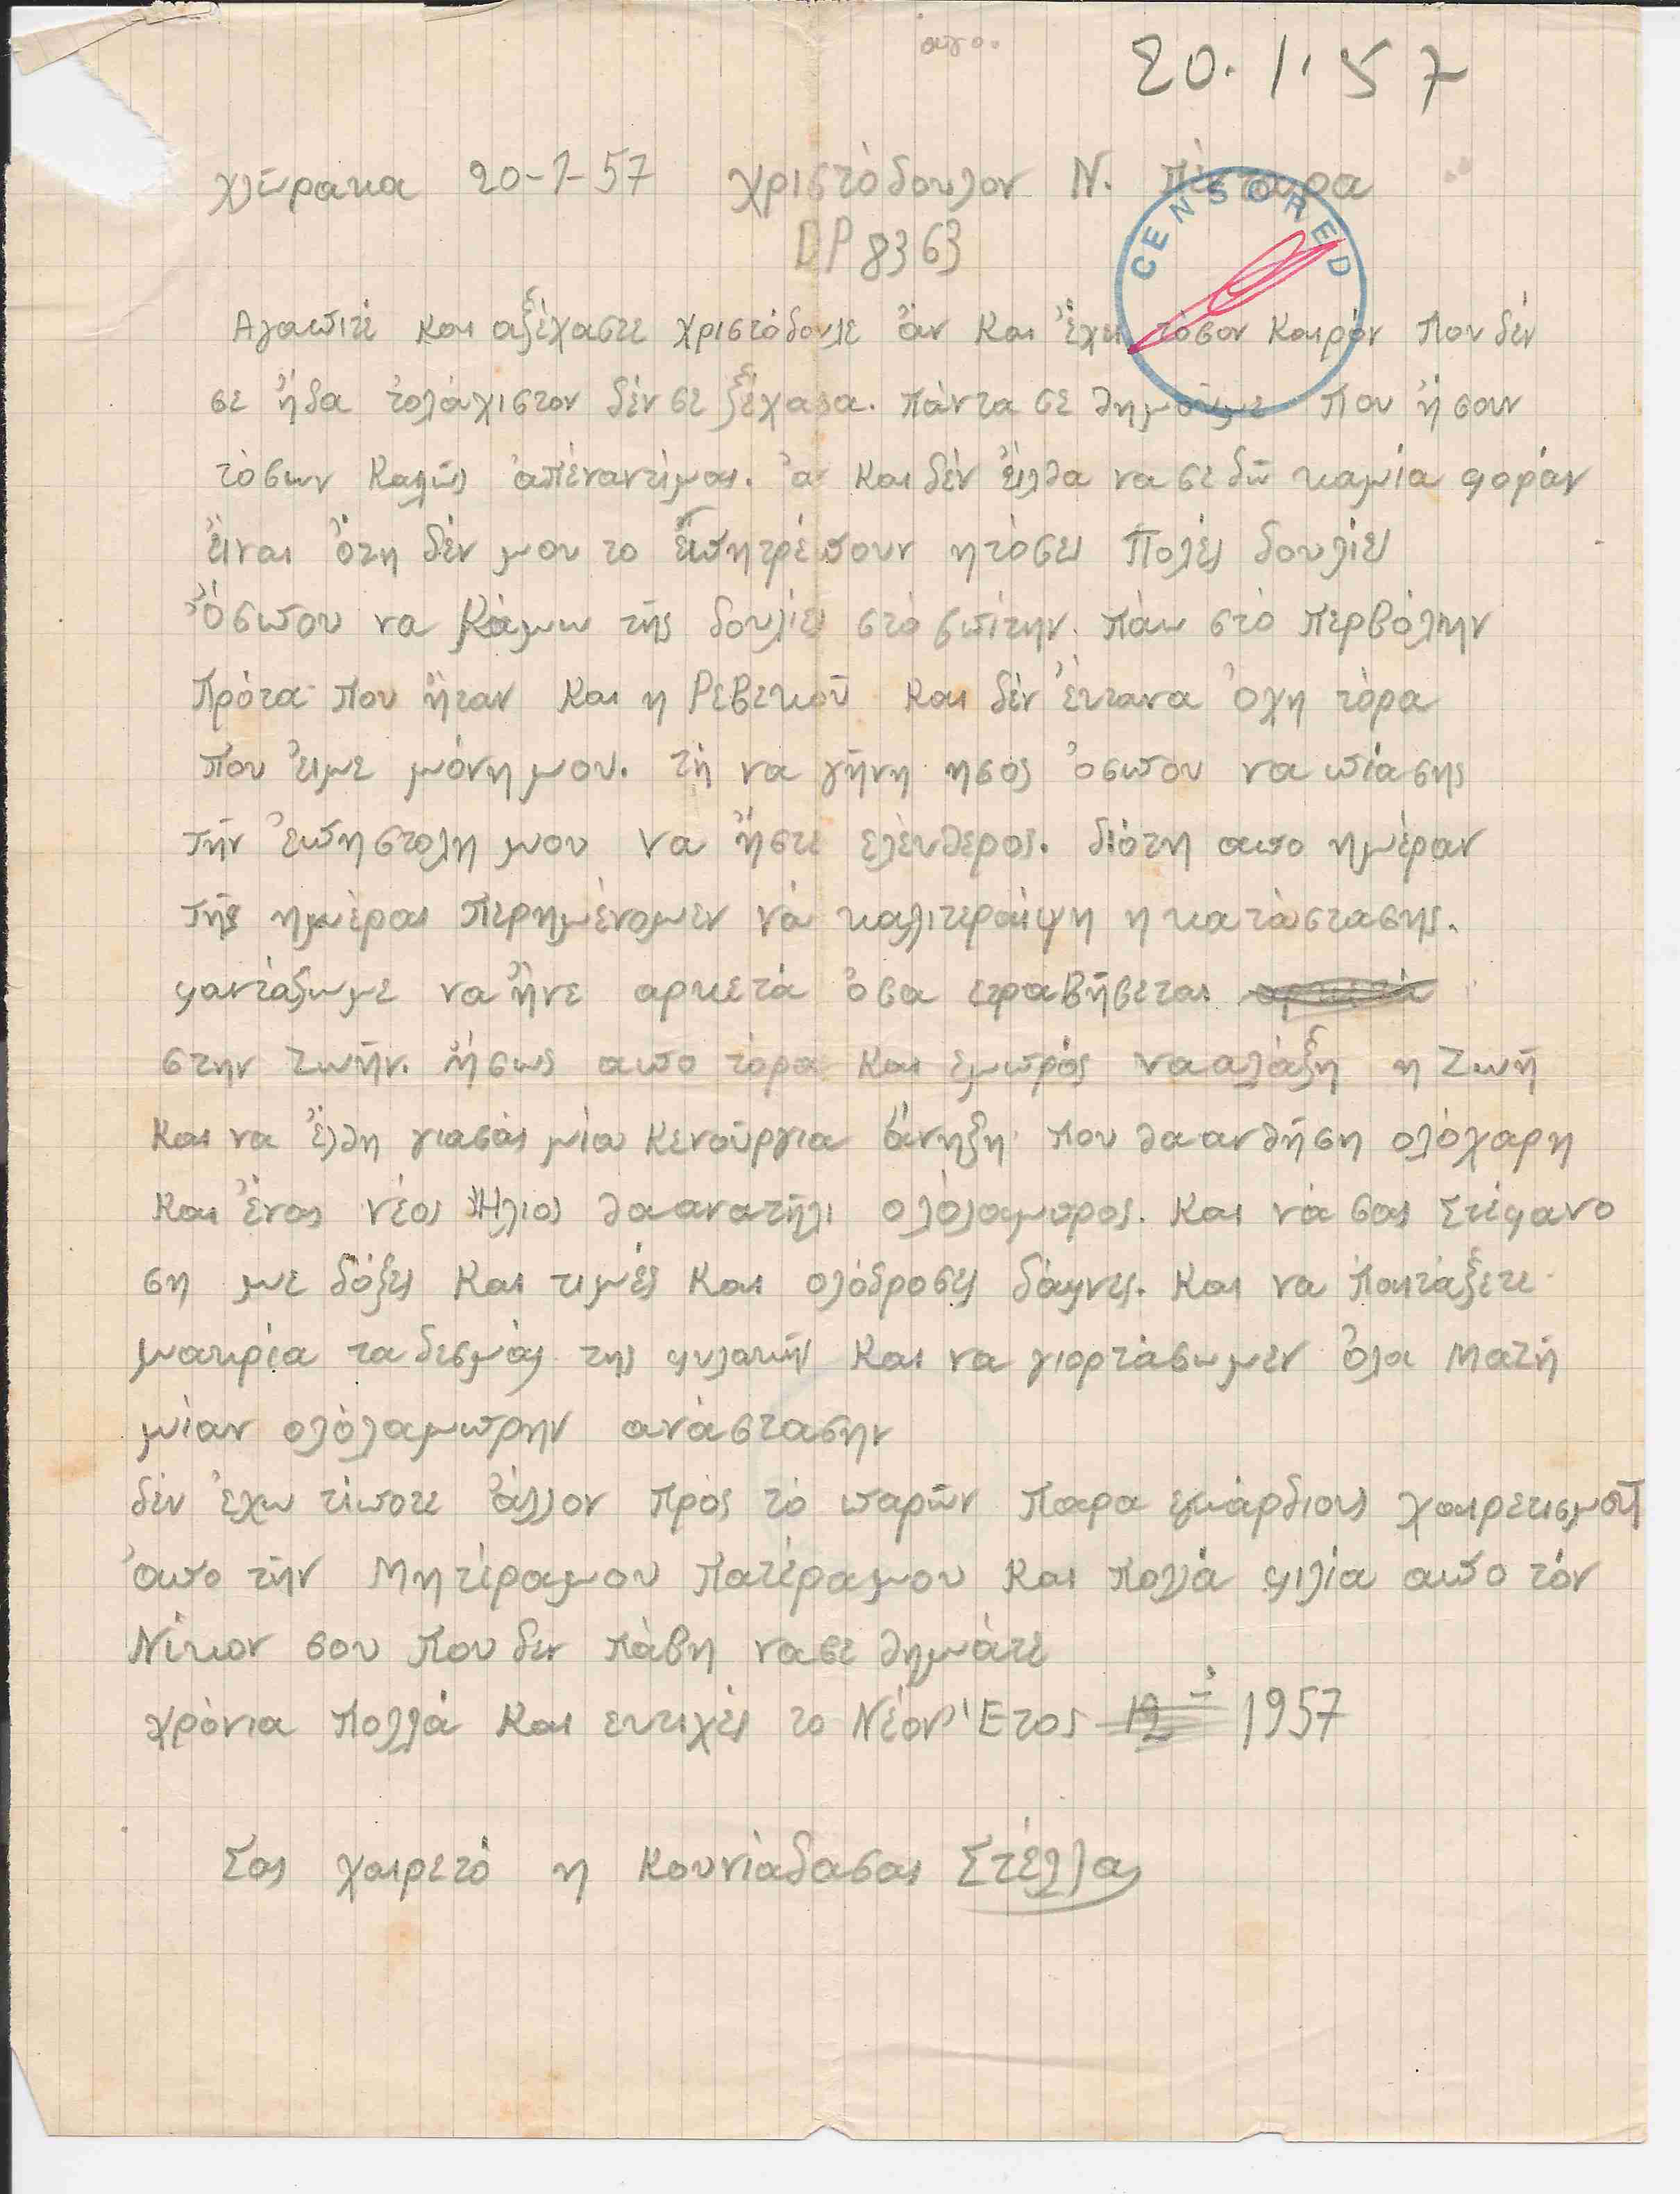 αγο.
20.1.57
Χλώρακα 20-1-57 Χριστόδουλον Ν. Πίσσουρα
CENSORED
DP 8363
Αγαπιτέ και αξέχαστε Χριστόδουλε άν και έχει τόσον καιρόν που δέν
σε ήδα τολάχιστον δέν σε ξέχασα. πάντα σε θημούμε που ήσουν
τόσων καλώς απέναντίμας. ά και δέν ήλθα να σε δώ καμία φοράν
είναι ότη δέν μου το επητρέπουν η τόσες πολές δουλίες
Όσπου να κάμω τής δουλίες στό σπίτην. πάω στό περβόλην
Πρότα που ήταν και η Ρεβεκού και δέν έυτανα όχη τόρα
που είμε μόνη μου. τή να γήνη ησος όσπου να πιάσης
τήν επηστολη μου να ήστε ελέυθερος. διότη απο ημέραν
τής ημέρας περημένομεν νά καλιτεράψη η κατάστασης.
φαντάζωμε να ήνε αρκετά όσα ετραβήσεται αρκετά
στην ζωήν. ήσως απο τόρα και εμπρός να αλάξη η Ζωή
και να έλθη γιασάς μία κενούργια άνηξη που θα ανθήση ολόχαρη
και ένας νέος Ηλιος θα ανατήλι ολόλαμπρος. Και νά σας Στέφανο
ση με δόξες και τιμές και ολόδροσες δάφνες. Και να πατάξετε
μακρία τα δεσμάς της φυλακής και να γιορτάσωμεν όλα ματή
μίαν ολόλαμπρην ανάστασην
δέν έχω τίποτε άλλον πρός τό παρών παρα εγκάρδιους χαιρετισμούς
απο τήν Μητέραμου Πατέραμου και πολλά φιλία απο τόν
Νίκον σου που δεν πάβη να σε θημάτε
χρόνια πολλά και ευτιχές το Νέον Έτος 12 1957
Σας χαιρετό η κουνιάδασας Στέλλα